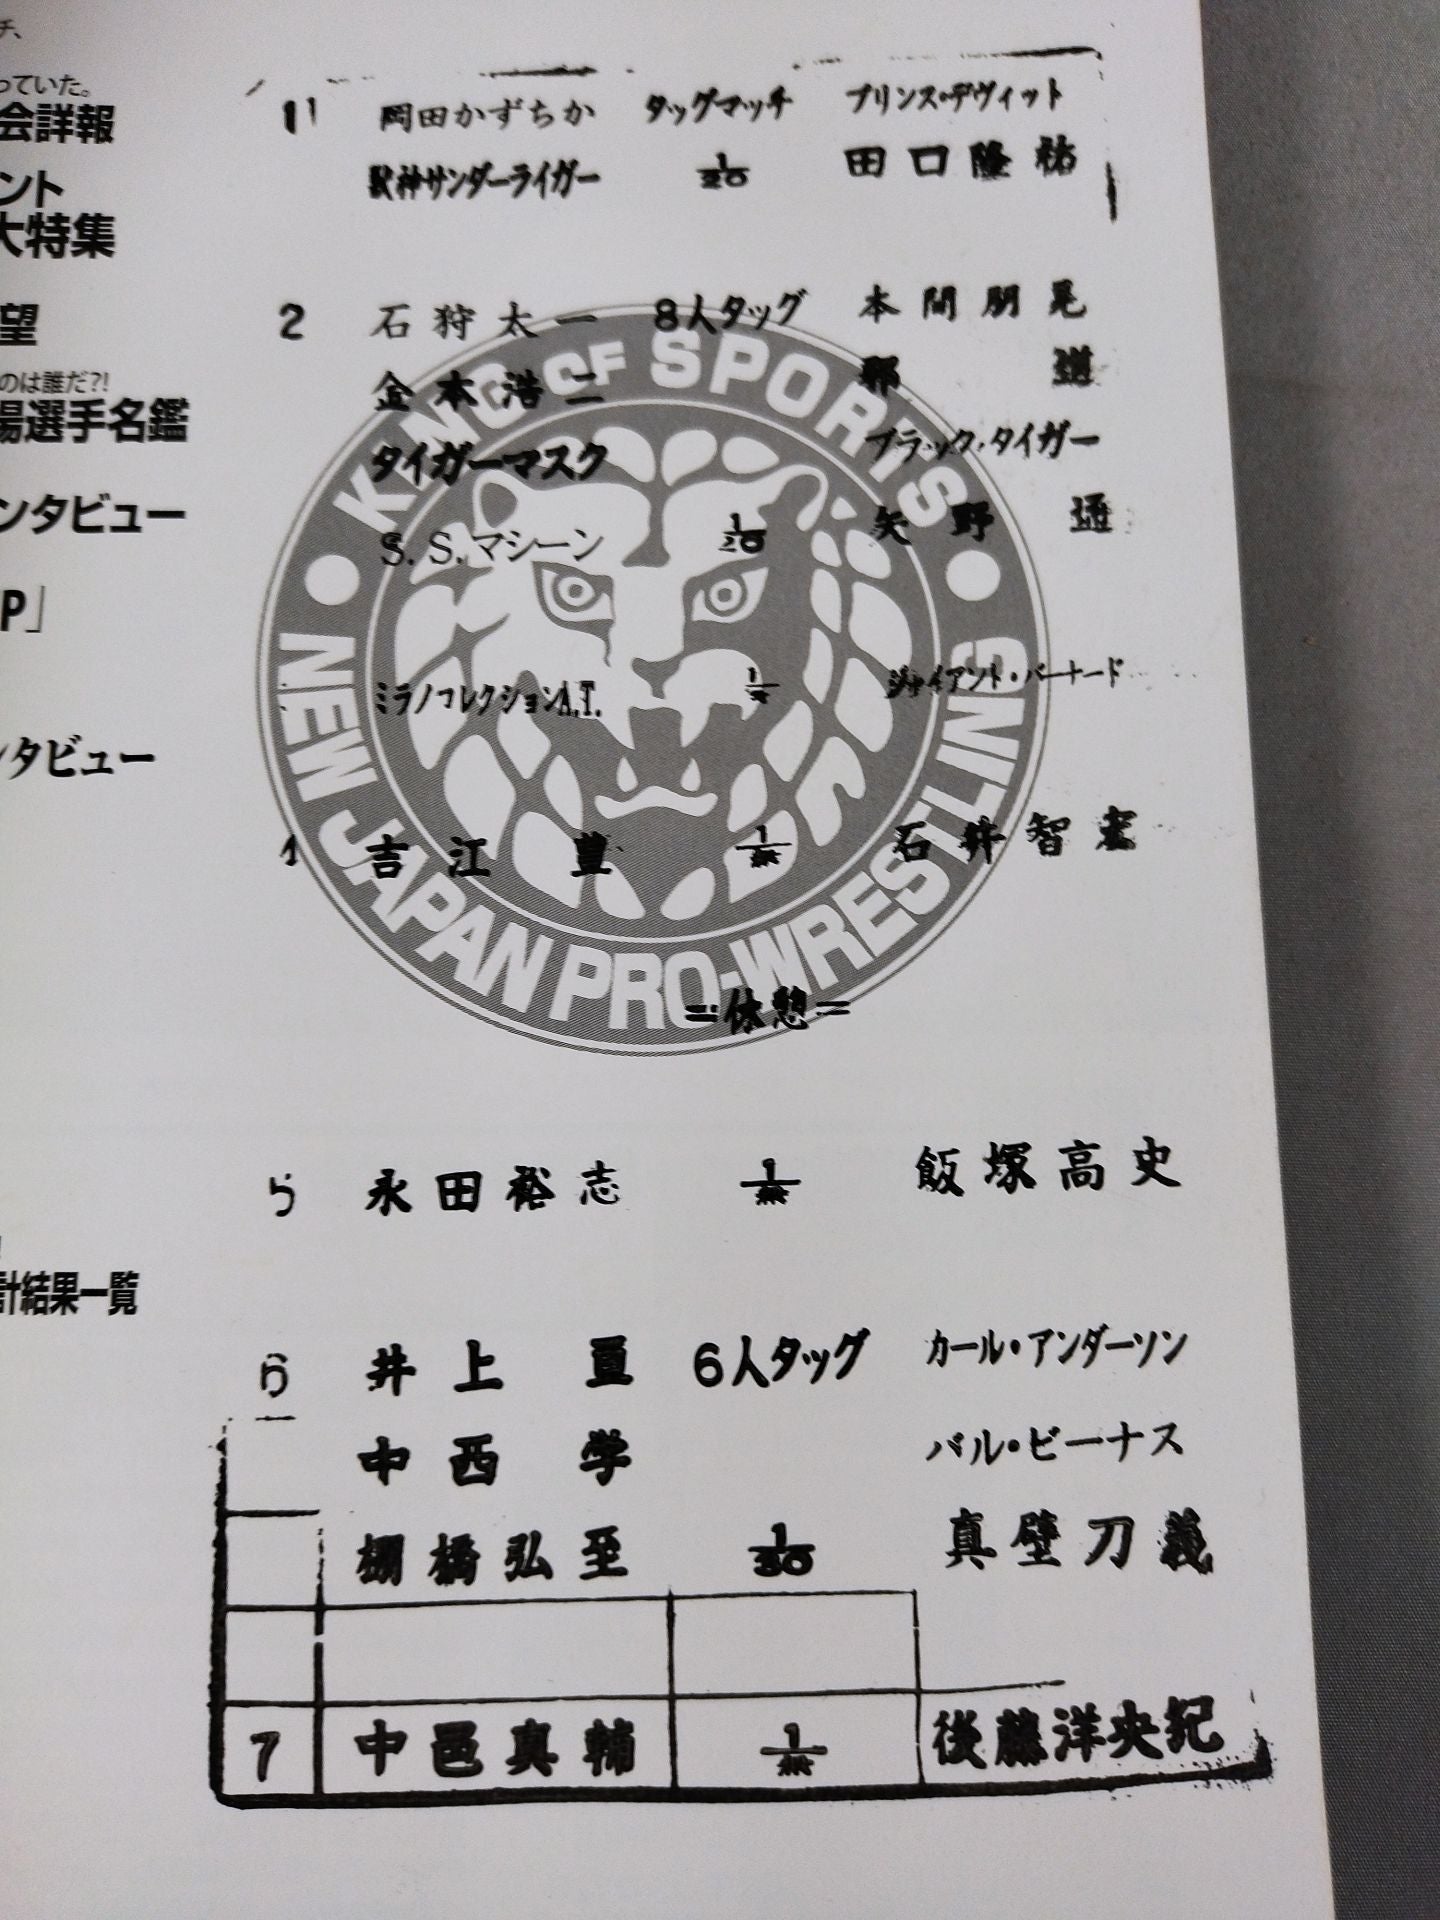 チ、
っていた。
会詳報
ント
大特集
望
のは誰だ?!
場選手名鑑
ンタビュー
P」
ンタビュー
計結果一覧
1 岡田かずちか タッグマッチ プリンス・デヴィット
獣神サンダーライガー 1/20 田口隆祐
2 石狩太一 8人タッグ 本間朋晃
金本浩二 邪道
タイガーマスク ブラック・タイガー
S.S.マシーン 1/20 矢野通
ミラノコレクションA.T. ジャイアント・バーナード
吉江豊 1/無 石井智宏
=休憩=
5 永田裕志 1/無 飯塚高史
6 井上亘 6人タッグ カール・アンダーソン
中西学 バル・ビーナス
棚橋弘至 1/30 真壁刀義
7 中邑真輔 1/無 後藤洋央紀
KING OF SPORTS
NEW JAPAN PRO-WRESTLING